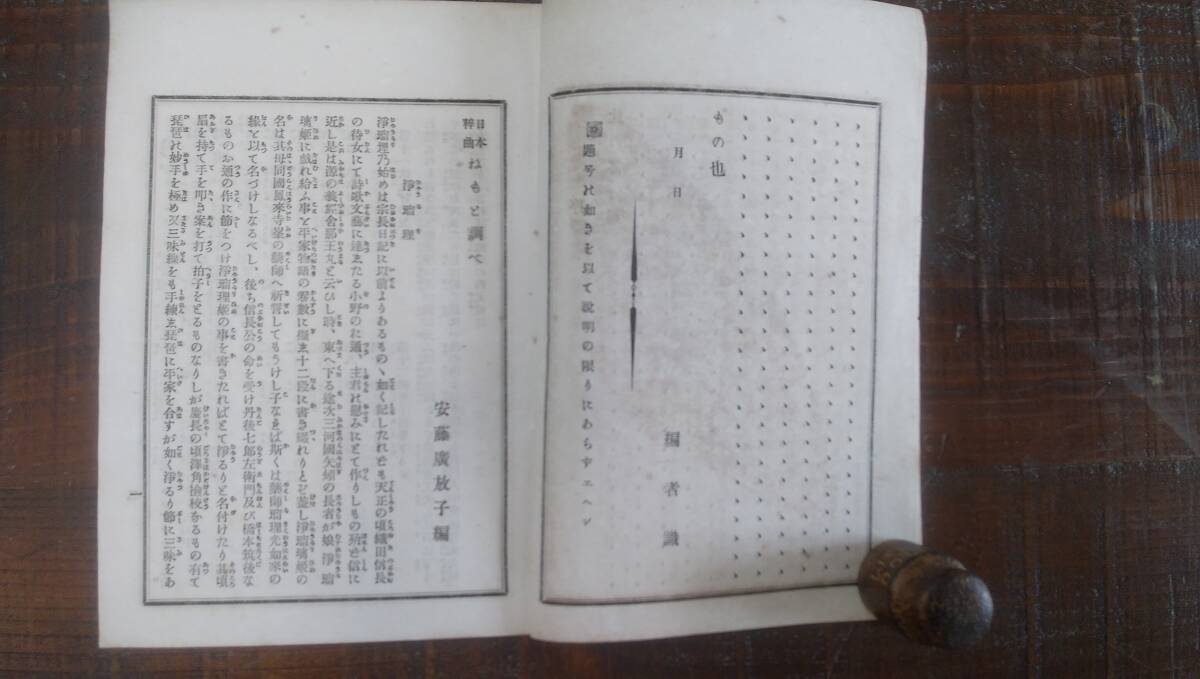 もの也
月 日
編者識
題号は如きを以て説明の限りにあらずエヘン
日本粹曲 ねもと調べ
安藤廣放子編
淨瑠理
淨瑠理乃始めは宗長日記に以前よりあるものゝ如く記したれども天正の頃織田信長
の侍女にて詩歌文藝に達したる小野のお通、主君は慰みにとて作りしもの殆ど信に
近し是は源の義經舍那王丸と云ひし時、東へ下る途次三河國矢矧の長者が娘淨瑠
璃姫に戯れ給ふ事を平家物語の卷數に擬ゑ十二段に書き綴れりとぞ蓋し淨瑠璃姫の
名は其母同國鳳來寺峯の藥師へ祈誓してもうけし子なれば斯くは藥師瑠理光如來の
緣を以て名づけしなるべし、後ち信長公の命を受け丹後七郎左衛門及び橋本筑後な
るものお通の作に節をつけ淨瑠理姫の事を書きたればとて淨るりと名付けたり其頃
扇を持て手を叩き案を打て拍子をとるものなりしが慶長の頃澤角撿校なるもの有て
琵琶は妙手を極め又三味線をも手練ゑ琵琶に平家を合すが如く淨るり節に三味をあ
一